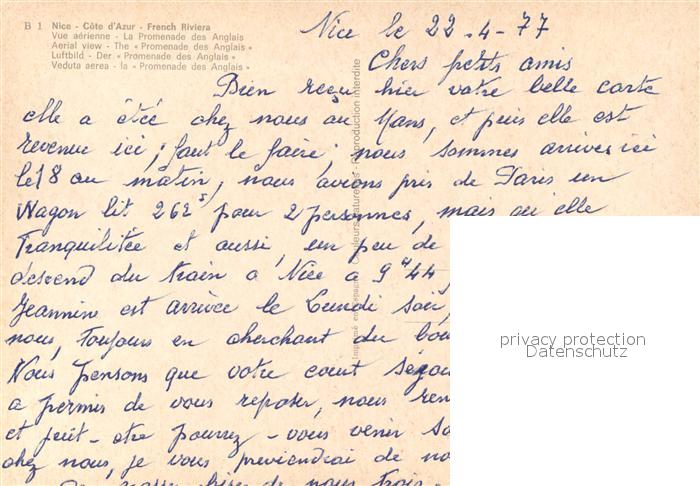 B 1 Nice - Côte d'Azur - French Riviera
Vue aérienne - La Promenade des Anglais
Aerial view - The « Promenade des Anglais »
Luftbild - Der « Promenade des Anglais »
Veduta aerea - la « Promenade des Anglais »
Nice le 22-4-77
Chers petits amis
Bien reçu hier votre belle carte
elle a étéé chez nous au Mans, et puis elle est
revenue ici, faut le faire; nous sommes arrivés ici
le 18 au matin, nous avions pris de Paris un
Wagon lit 262⁵ pour 2 personnes, mais qu'elle
Tranquilitée et aussi, un peu de
descend du train a Nice a 9ʰ44
Jeannine est arrivée le Lundi soir,
nous, Toujours en cherchant du
Nous pensons que votre court
a permis de vous reposer, nous
et peut-etre pourrez-vous venir
chez nous, je vous previendrai de
bises de nous trois.
Imprimé en Espagne
Couleurs naturelles - Reproduction interdite
privacy protection
Datenschutz